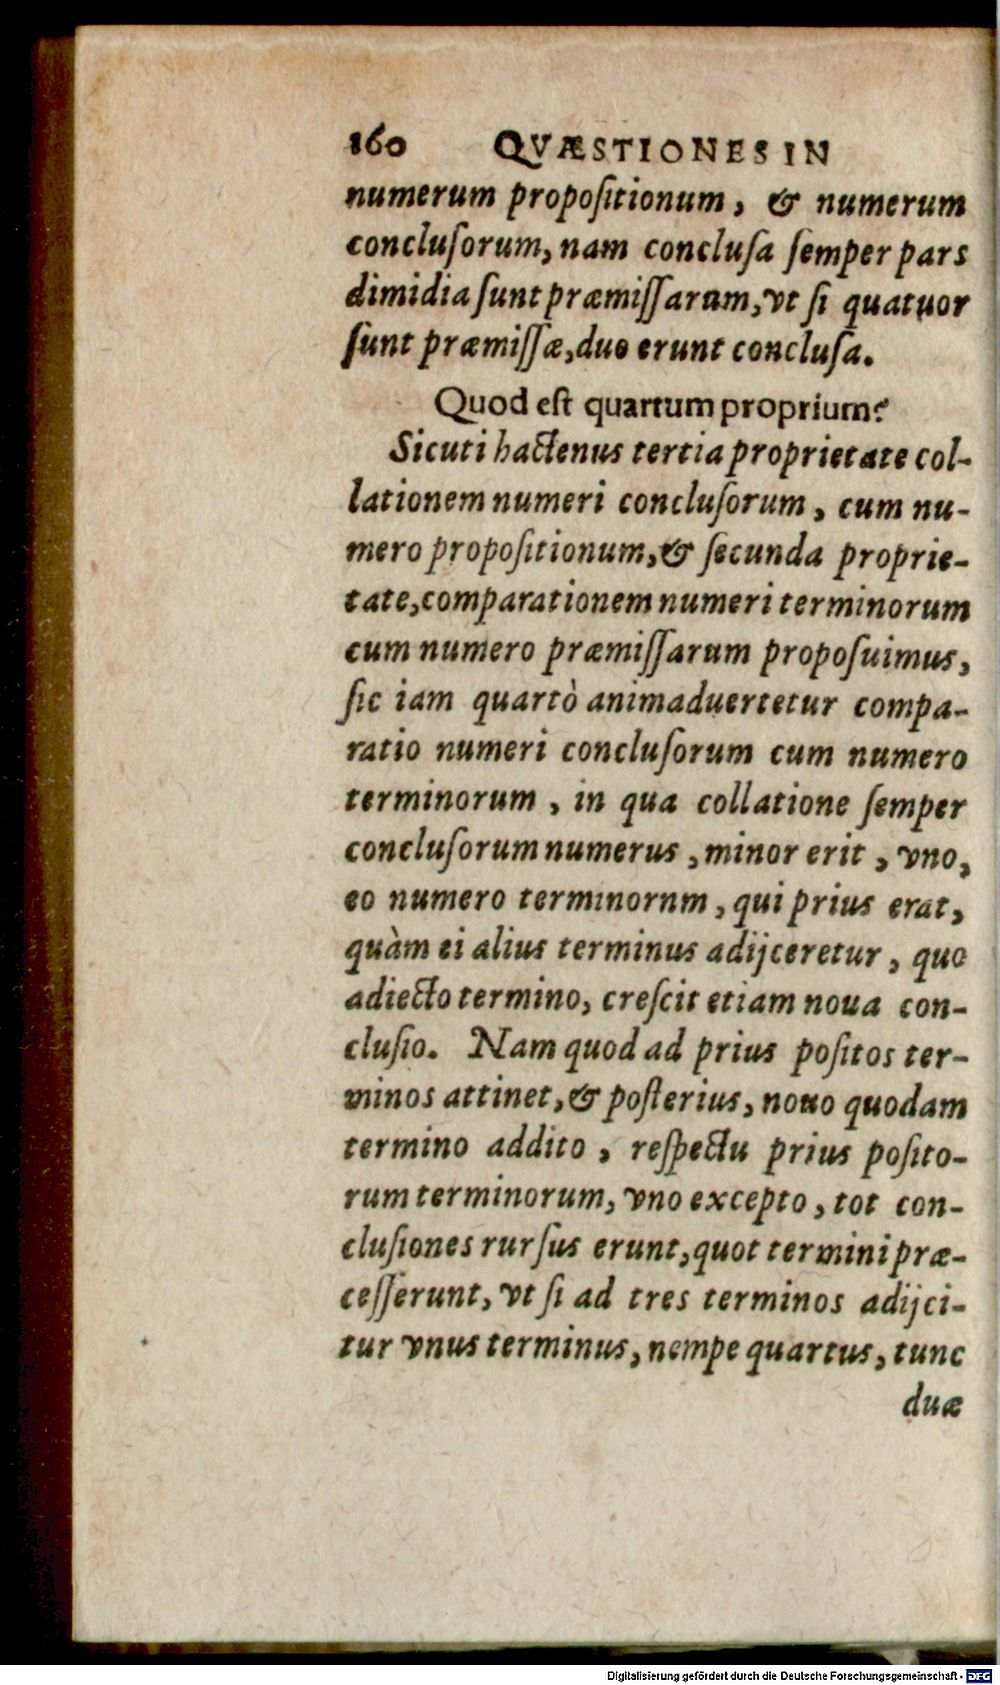 160 QVÆSTIONES IN
numerum propoſitionum, & numerum
concluſorum, nam concluſa ſemper pars
dimidia ſunt præmiſſarum, vt ſi quatuor
ſunt præmiſſæ, duo erunt concluſa.
Quod eſt quartum proprium?
Sicuti hactenus tertia proprietate col-
lationem numeri concluſorum, cum nu-
mero propoſitionum, & ſecunda proprie-
tate, comparationem numeri terminorum
cum numero præmiſſarum propoſuimus,
ſic iam quartò animaduertetur compa-
ratio numeri concluſorum cum numero
terminorum, in qua collatione ſemper
concluſorum numerus, minor erit, vno,
eo numero terminornm, qui prius erat,
quàm ei alius terminus adijceretur, quo
adiecto termino, creſcit etiam noua con-
cluſio. Nam quod ad prius poſitos ter-
minos attinet, & poſterius, nouo quodam
termino addito, reſpectu prius poſito-
rum terminorum, vno excepto, tot con-
cluſiones rurſus erunt, quot termini præ-
ceſſerunt, vt ſi ad tres terminos adijci-
tur vnus terminus, nempe quartus, tunc
duæ
Digitalisierung gefördert durch die Deutsche Forschungsgemeinschaft - DFG